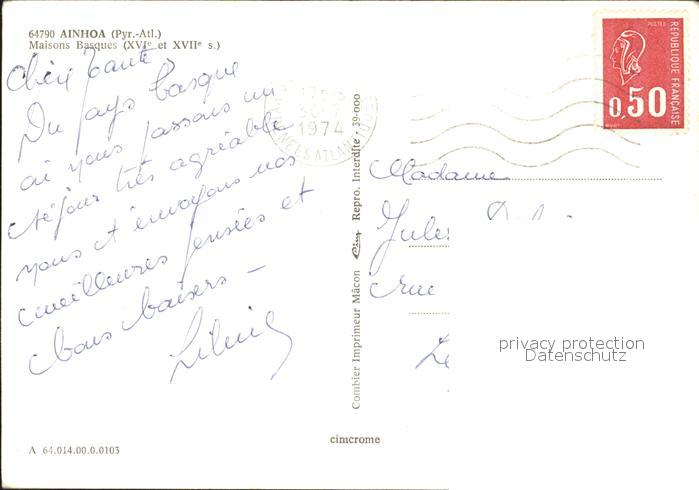 64790 AINHOA (Pyr.-Atl.)
Maisons Basques (XVIe et XVIIe s.)
Chère Tante
Du pays basque
où nous passons un
séjour très agréable
nous t'envoyons nos
meilleures pensées et
bons baisers -
A 64.014.00.0.0103
Combier Imprimeur Mâcon Cim Repro. Interdite 39-000
cimcrome
17
30
1974
PYRENEES ATLANTIQUES
POSTES
REPUBLIQUE FRANÇAISE
0,50
Madame
Jules
rue
privacy protection
Datenschutz